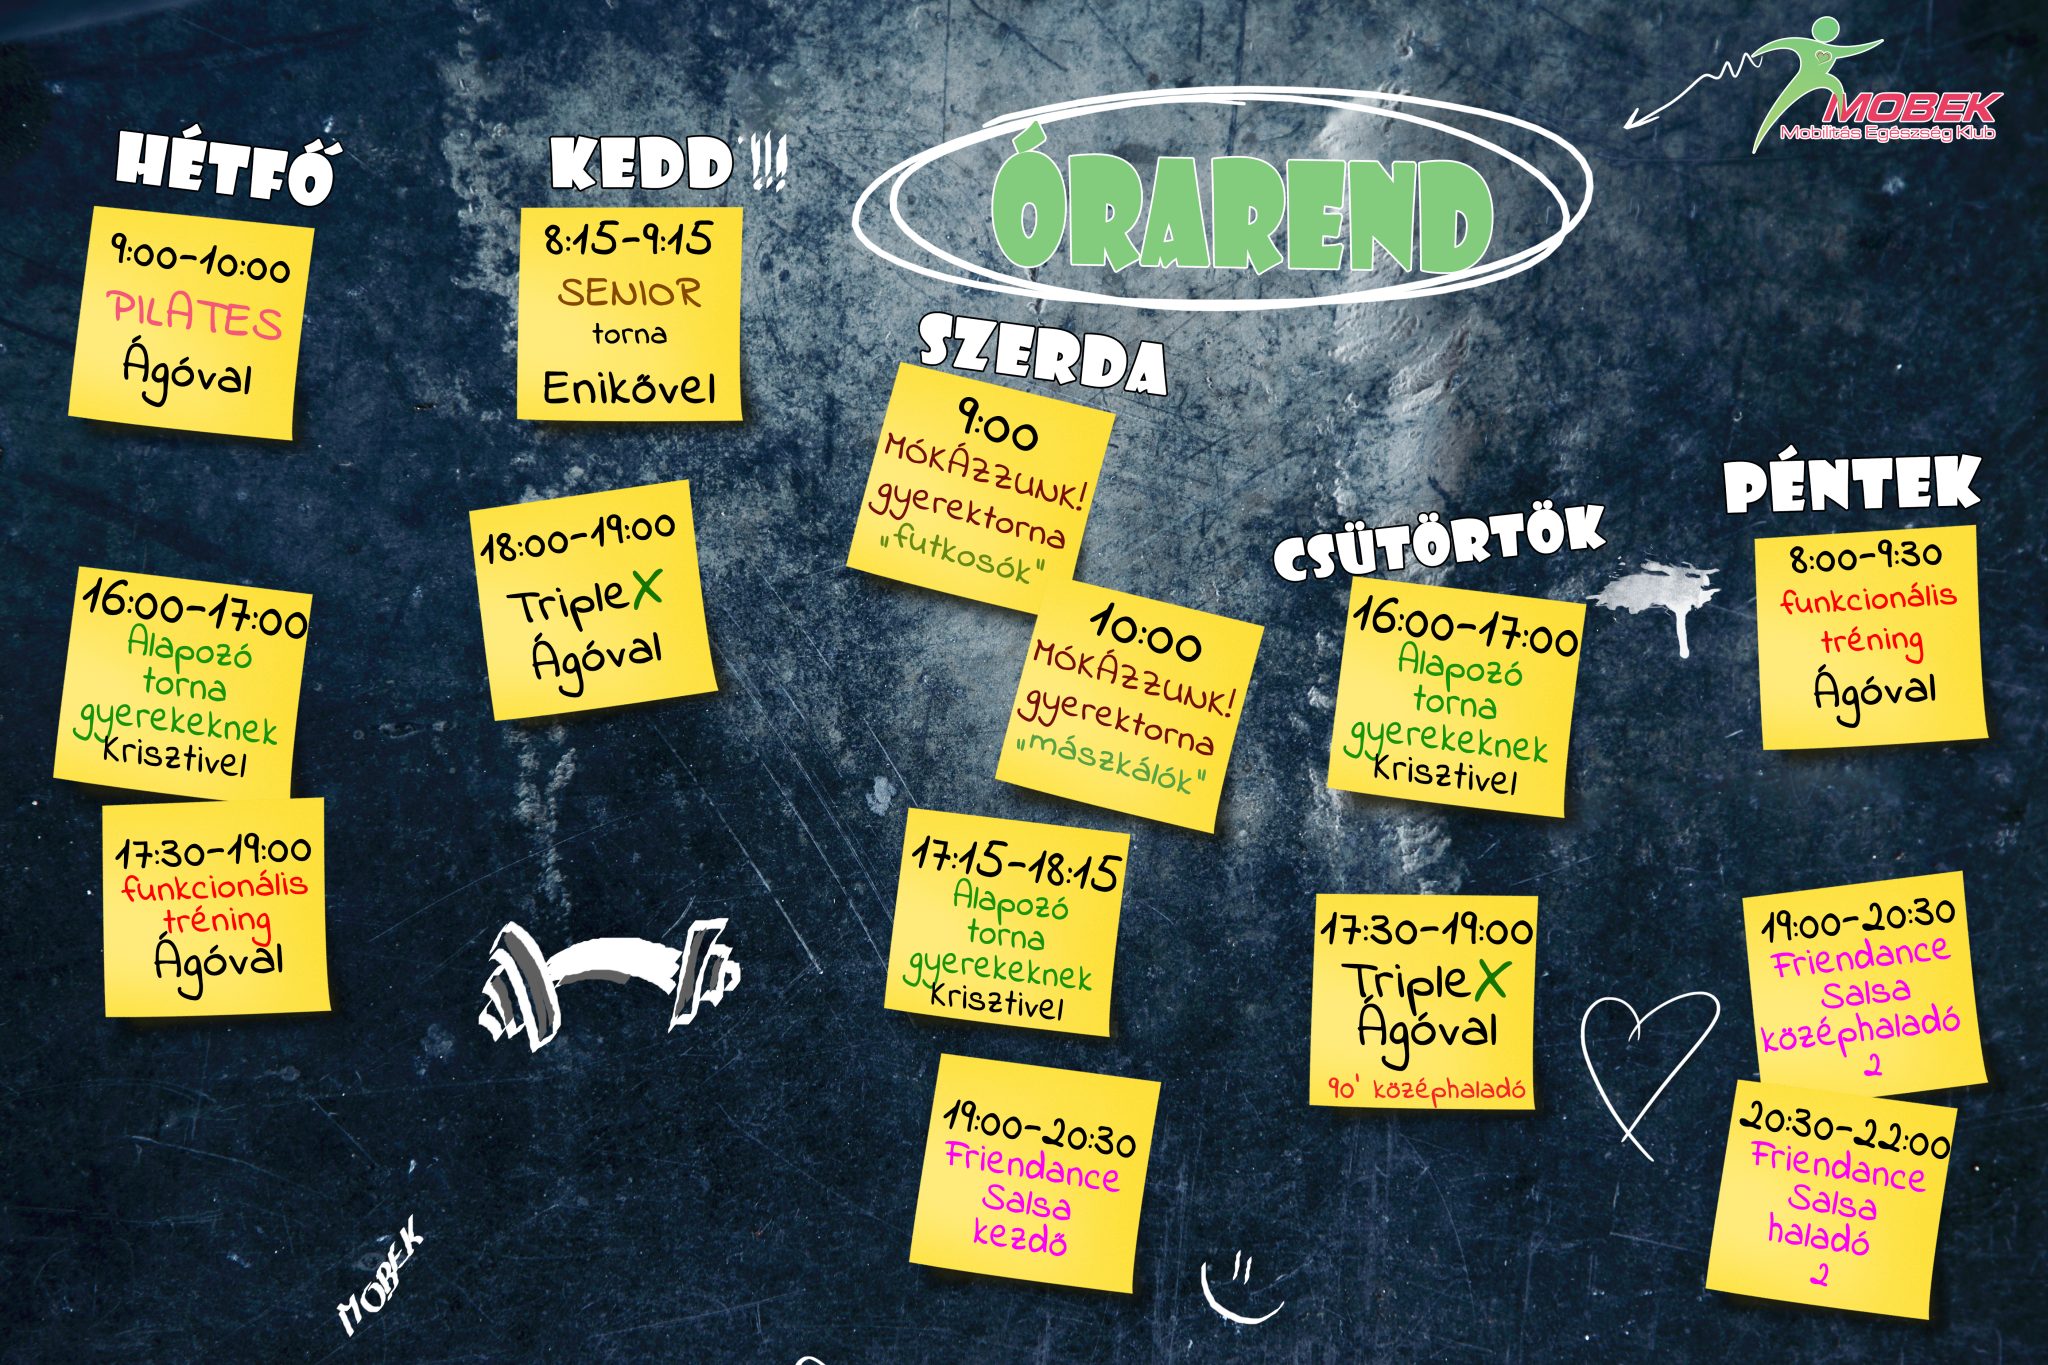 MOBEK
Mobilitás Egészség Klub
ÓRAREND
HÉTFŐ
9:00-10:00
PILATES
Ágóval
16:00-17:00
Alapozó
torna
gyerekeknek
Krisztivel
17:30-19:00
funkcionális
tréning
Ágóval
KEDD !!!
8:15-9:15
SENIOR
torna
Enikővel
18:00-19:00
TripleX
Ágóval
SZERDA
9:00
MÓKÁZZUNK!
gyerektorna
„futkosók"
10:00
MÓKÁZZUNK!
gyerektorna
„mászkálók"
17:15-18:15
Alapozó
torna
gyerekeknek
Krisztivel
19:00-20:30
Friendance
Salsa
kezdő
CSÜTÖRTÖK
16:00-17:00
Alapozó
torna
gyerekeknek
Krisztivel
17:30-19:00
TripleX
Ágóval
90' középhaladó
PÉNTEK
8:00-9:30
funkcionális
tréning
Ágóval
19:00-20:30
Friendance
Salsa
középhaladó
2
20:30-22:00
Friendance
Salsa
haladó
2
MOBEK